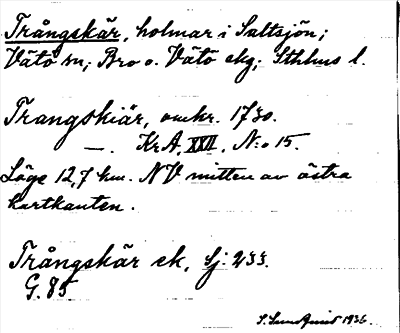 Trångskär, holmar i Saltsjön;
Vätö sn; Bro o. Vätö skg; Sthlms l.
Trangskiär, omkr. 1730.
—. Kr.A. XVII, N:o 15.
Läge 12,7 km. NV mitten av östra
kartkanten.
Trångskär ek, Sj: 233.
G. 85
S. Sundquist 1936.